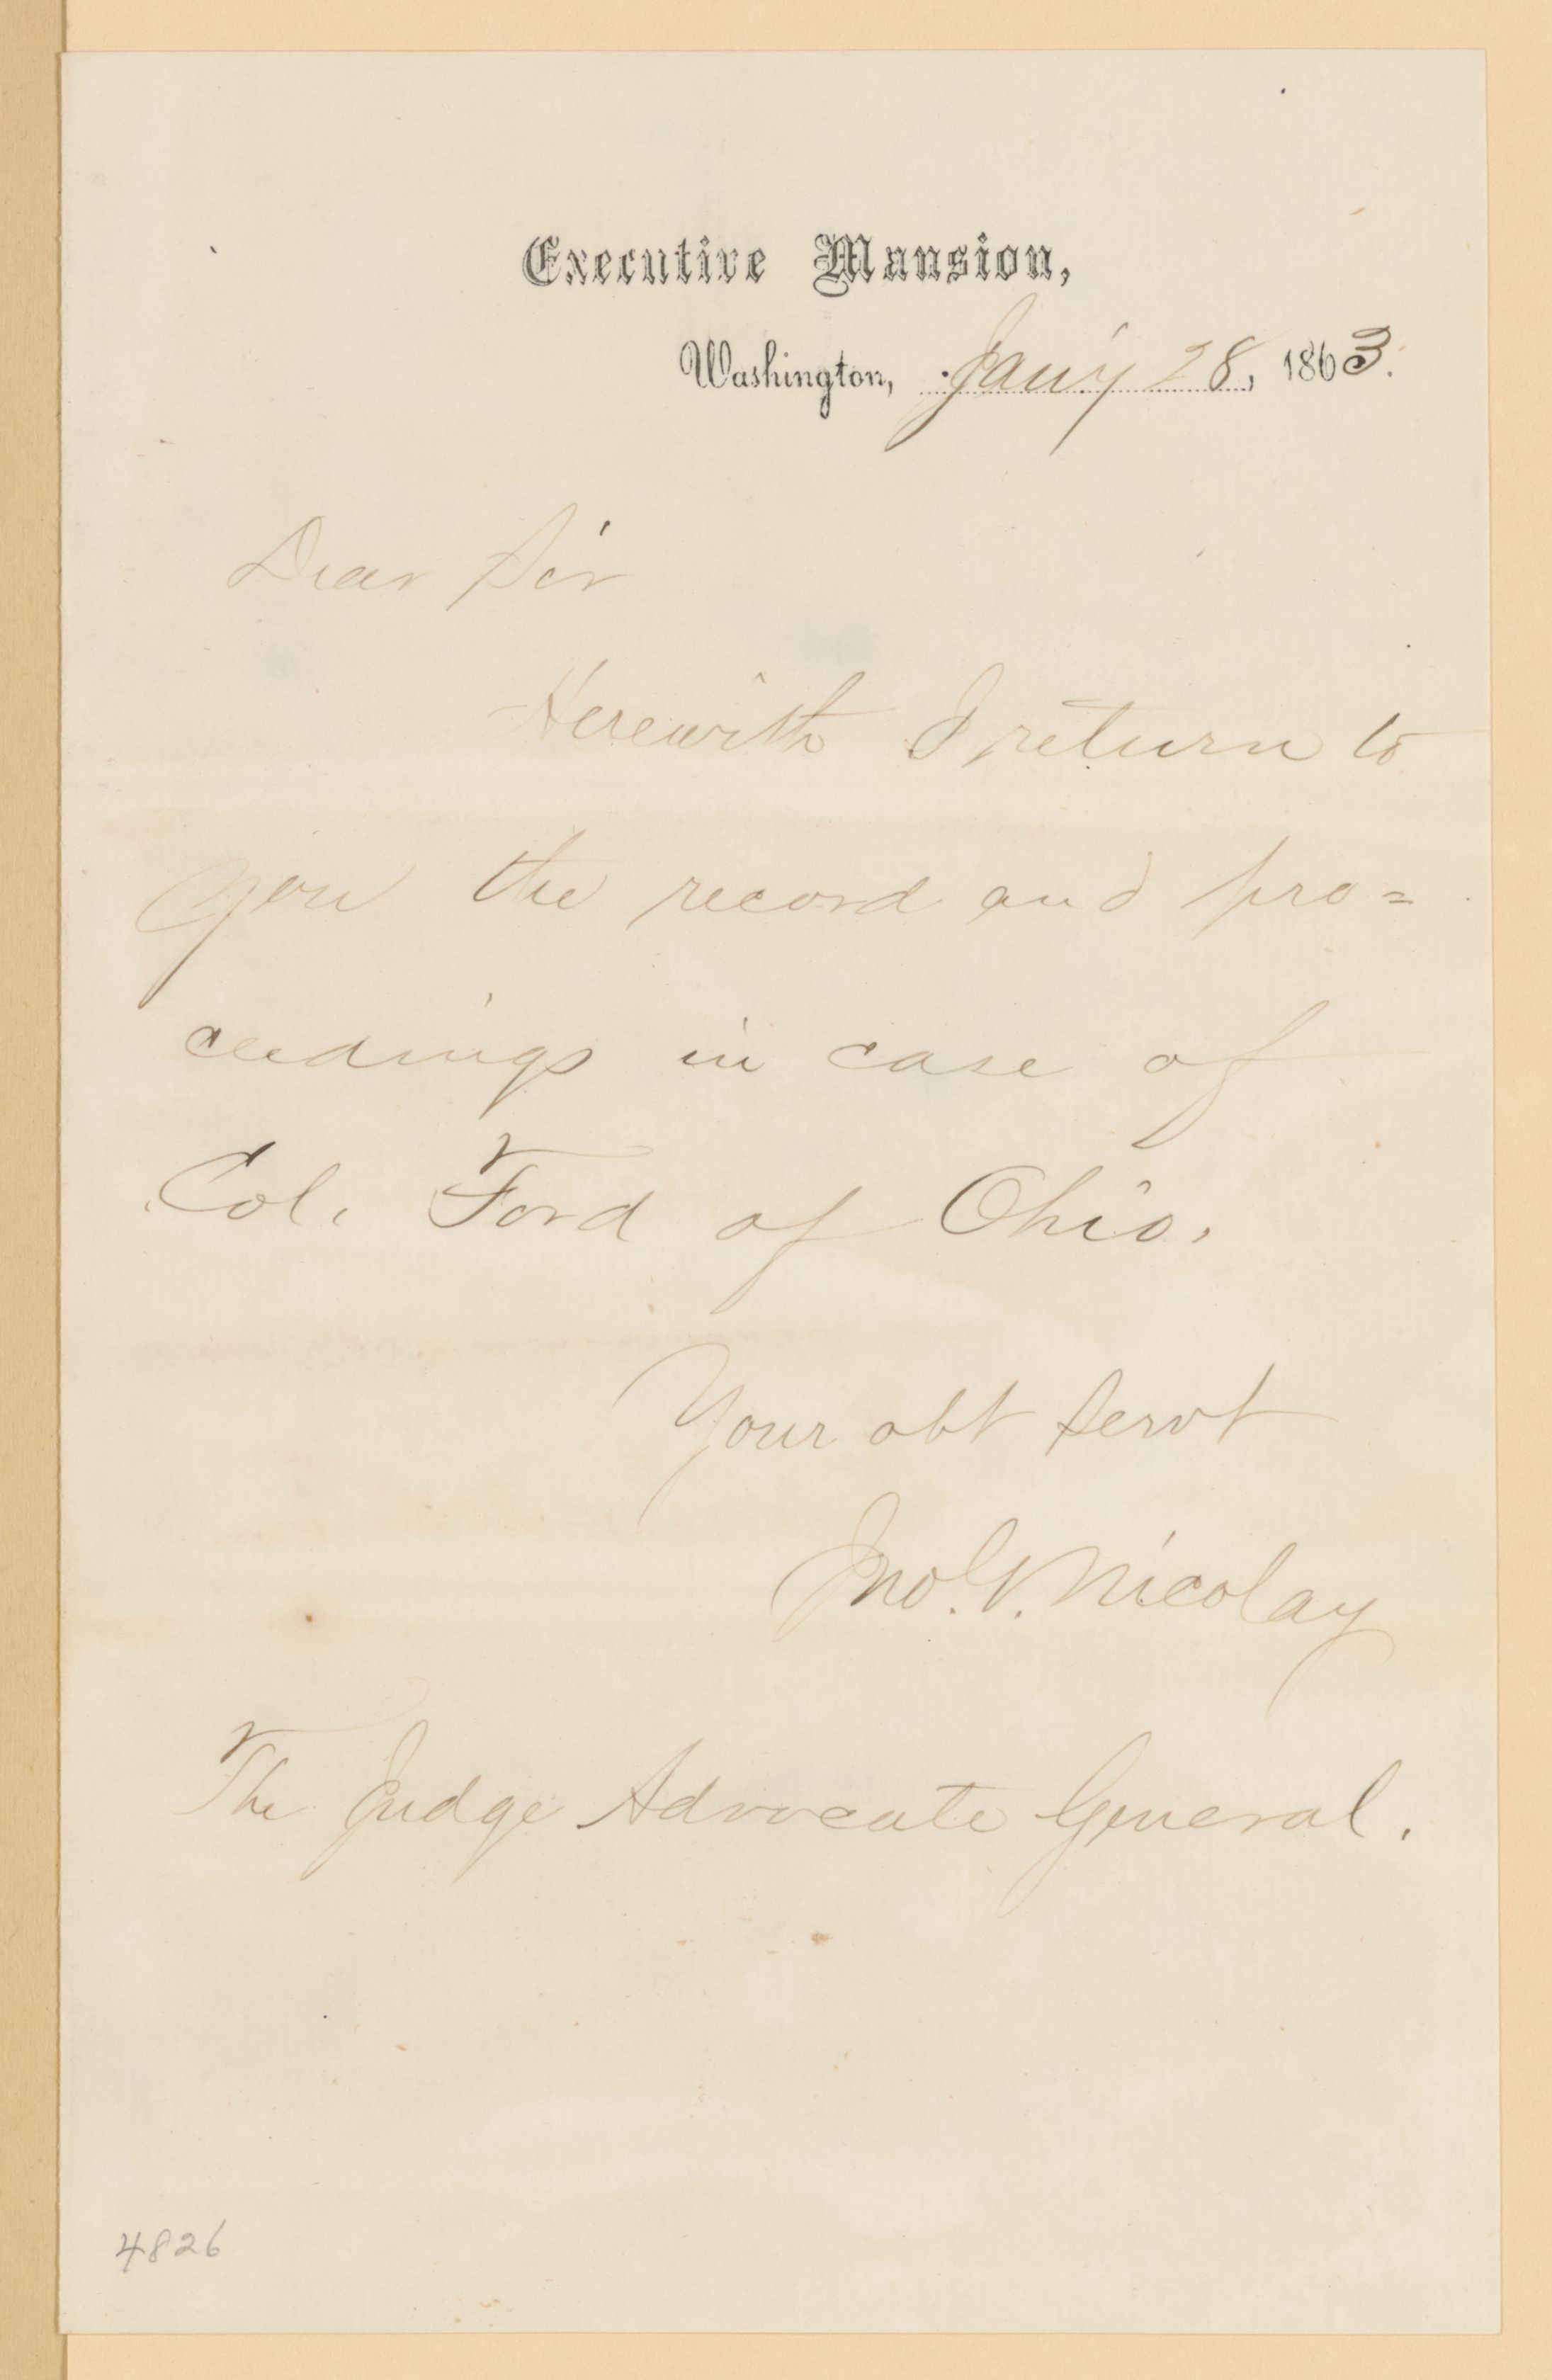 Executive Mansion,
Washington, Jan'y 28, 1863.
Dear Sir
Herewith I return to
you the record and pro=
ceedings in case of
Col. Ford of Ohio.
Your obt Servt
Jno. G. Nicolay
The Judge Advocate General.
4826